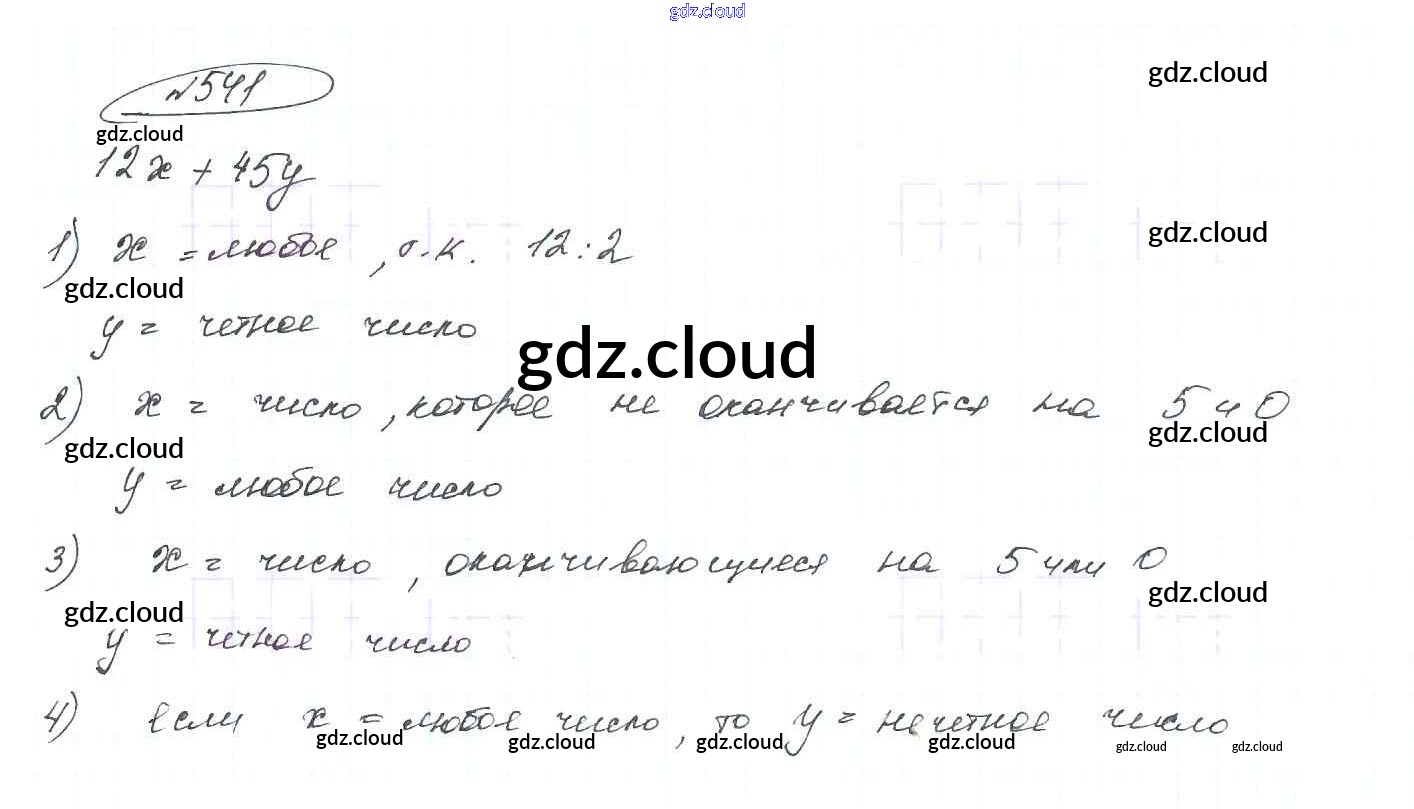 gdz.cloud
№541
gdz.cloud
gdz.cloud
12x + 45y
1) x = любое , т.к. 12:2
gdz.cloud
gdz.cloud
y = четное число
gdz.cloud
2) x = число , которое не оканчивается на 5 и 0
gdz.cloud
gdz.cloud
y = любое число
3) x = число , оканчивающиеся на 5 или 0
gdz.cloud
gdz.cloud
y = четное число
4) если x = любое число , то y = нечетное число
gdz.cloud gdz.cloud gdz.cloud gdz.cloud gdz.cloud gdz.cloud